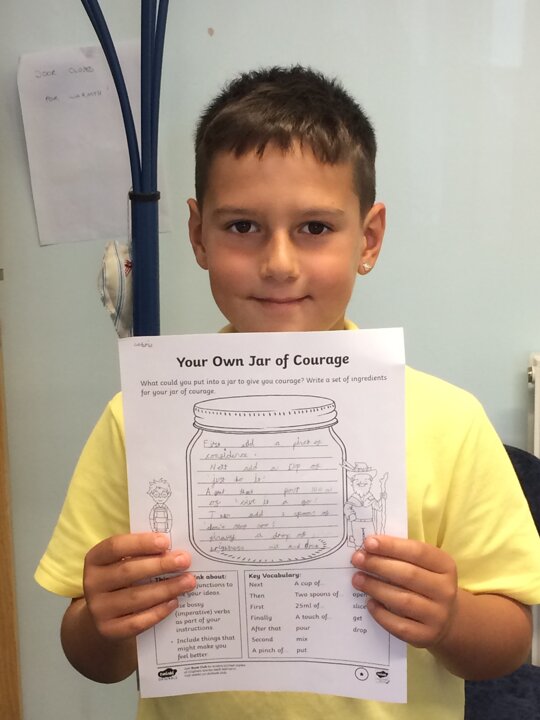 DOOR CLOSED
FOR WARMTH
Your Own Jar of Courage
What could you put into a jar to give you courage? Write a set of ingredients
for your jar of courage.
First add a pinch of
confidence.
Next add a cup of
just do it!
pour
of give it a go!
add 2 spoons of
don't stop now!
finally a drop of
brightness mix and
nk about:
junctions to
your ideas.
se bossy
(imperative) verbs
as part of your
instructions.
Include things that
might make you
feel better.
Key Vocabulary:
Next A cup of...
Then Two spoons of... open
First 25ml of... slice
Finally A touch of... get
After that pour drop
Second mix
A pinch of... put
twinkl